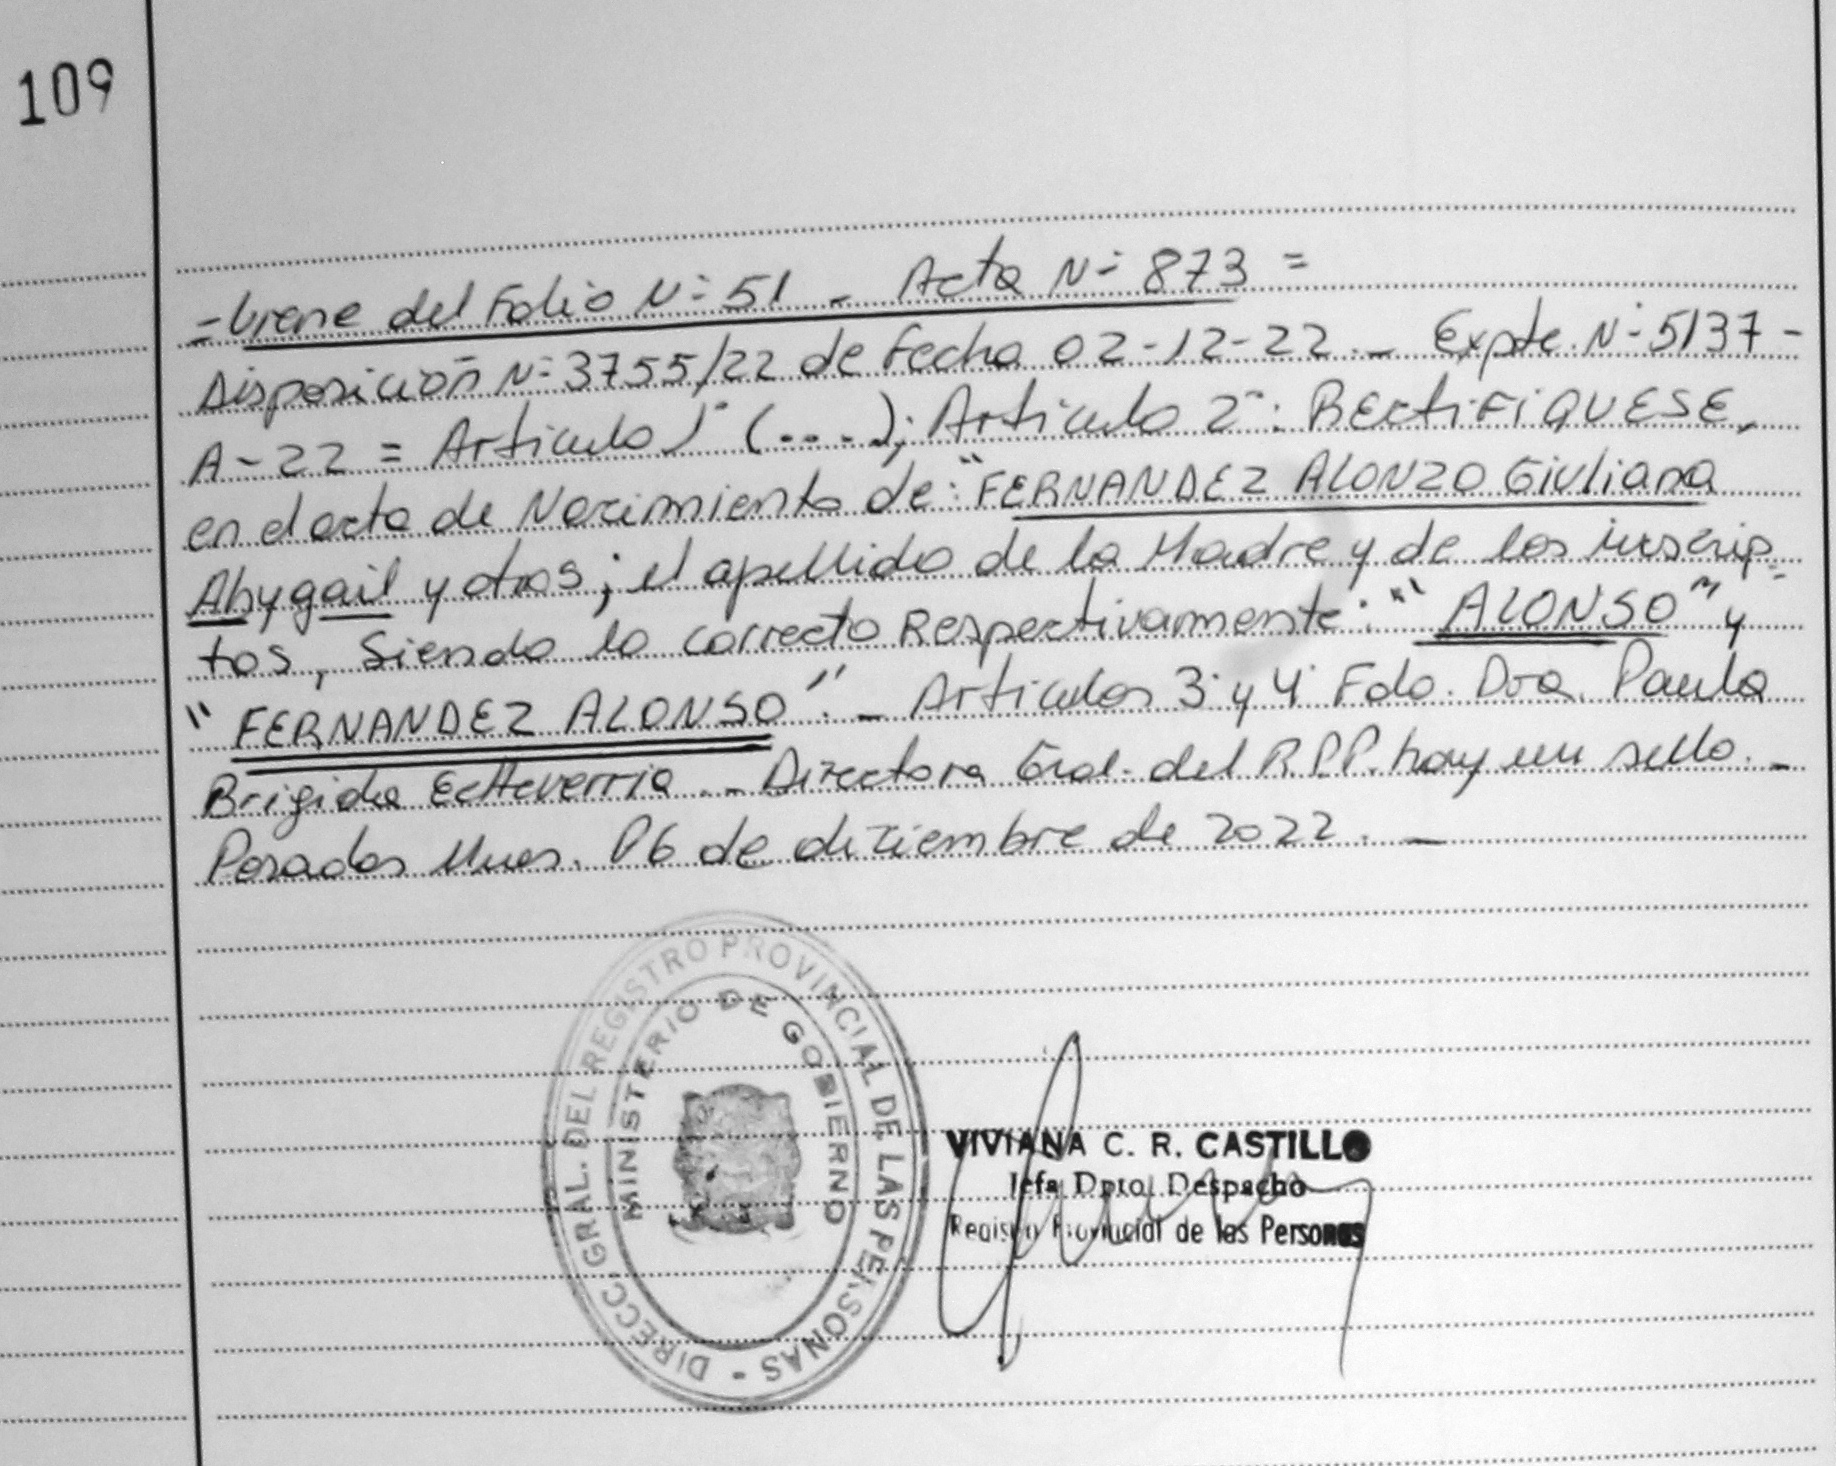 109
- Viene del Folio N° 51 - Acta N° 873 =
Disposición N° 3755/22 de Fecha 02-12-22.- Expte. N° 5137-
A-22 = Articulo 1° (....); Artículo 2°: RECtiFiQUESE,
en el acta de Nacimiento de: "FERNANDEZ ALONZO Giuliana
Abygail y otros; el apellido de la Madre y de los inscrip-
tos, Siendo lo correcto Respectivamente: "ALONSO" y
"FERNANDEZ ALONSO".- Articulos 3° y 4° Fdo. Dra. Paula
Brigida Echeverria.- Directora Gral. del R.P.P. hay un sello.-
Posadas Mnes. 06 de diciembre de 2022.-
DIRECC. GRAL. DEL REGISTRO PROVINCIAL DE LAS PERSONAS -
MINISTERIO DE GOBIERNO
VIVIANA C. R. CASTILLO
Jefa Dpto. Despacho
Registro Provincial de las Personas